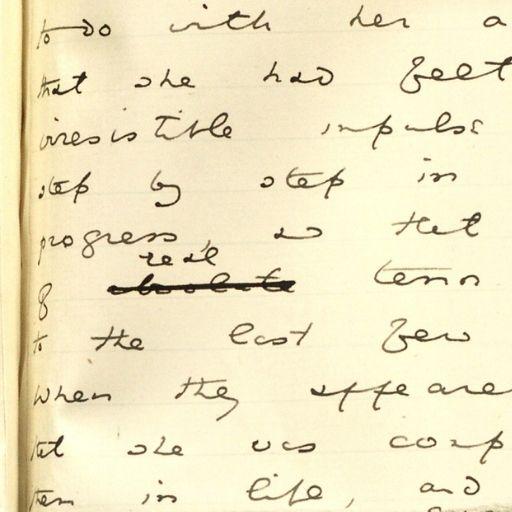 to do with her a
that she had felt
irresistible impulse
step by step in
progress, so that
real
of absolute terror
to the last few
when they appeare
that she was comp
them in life, and